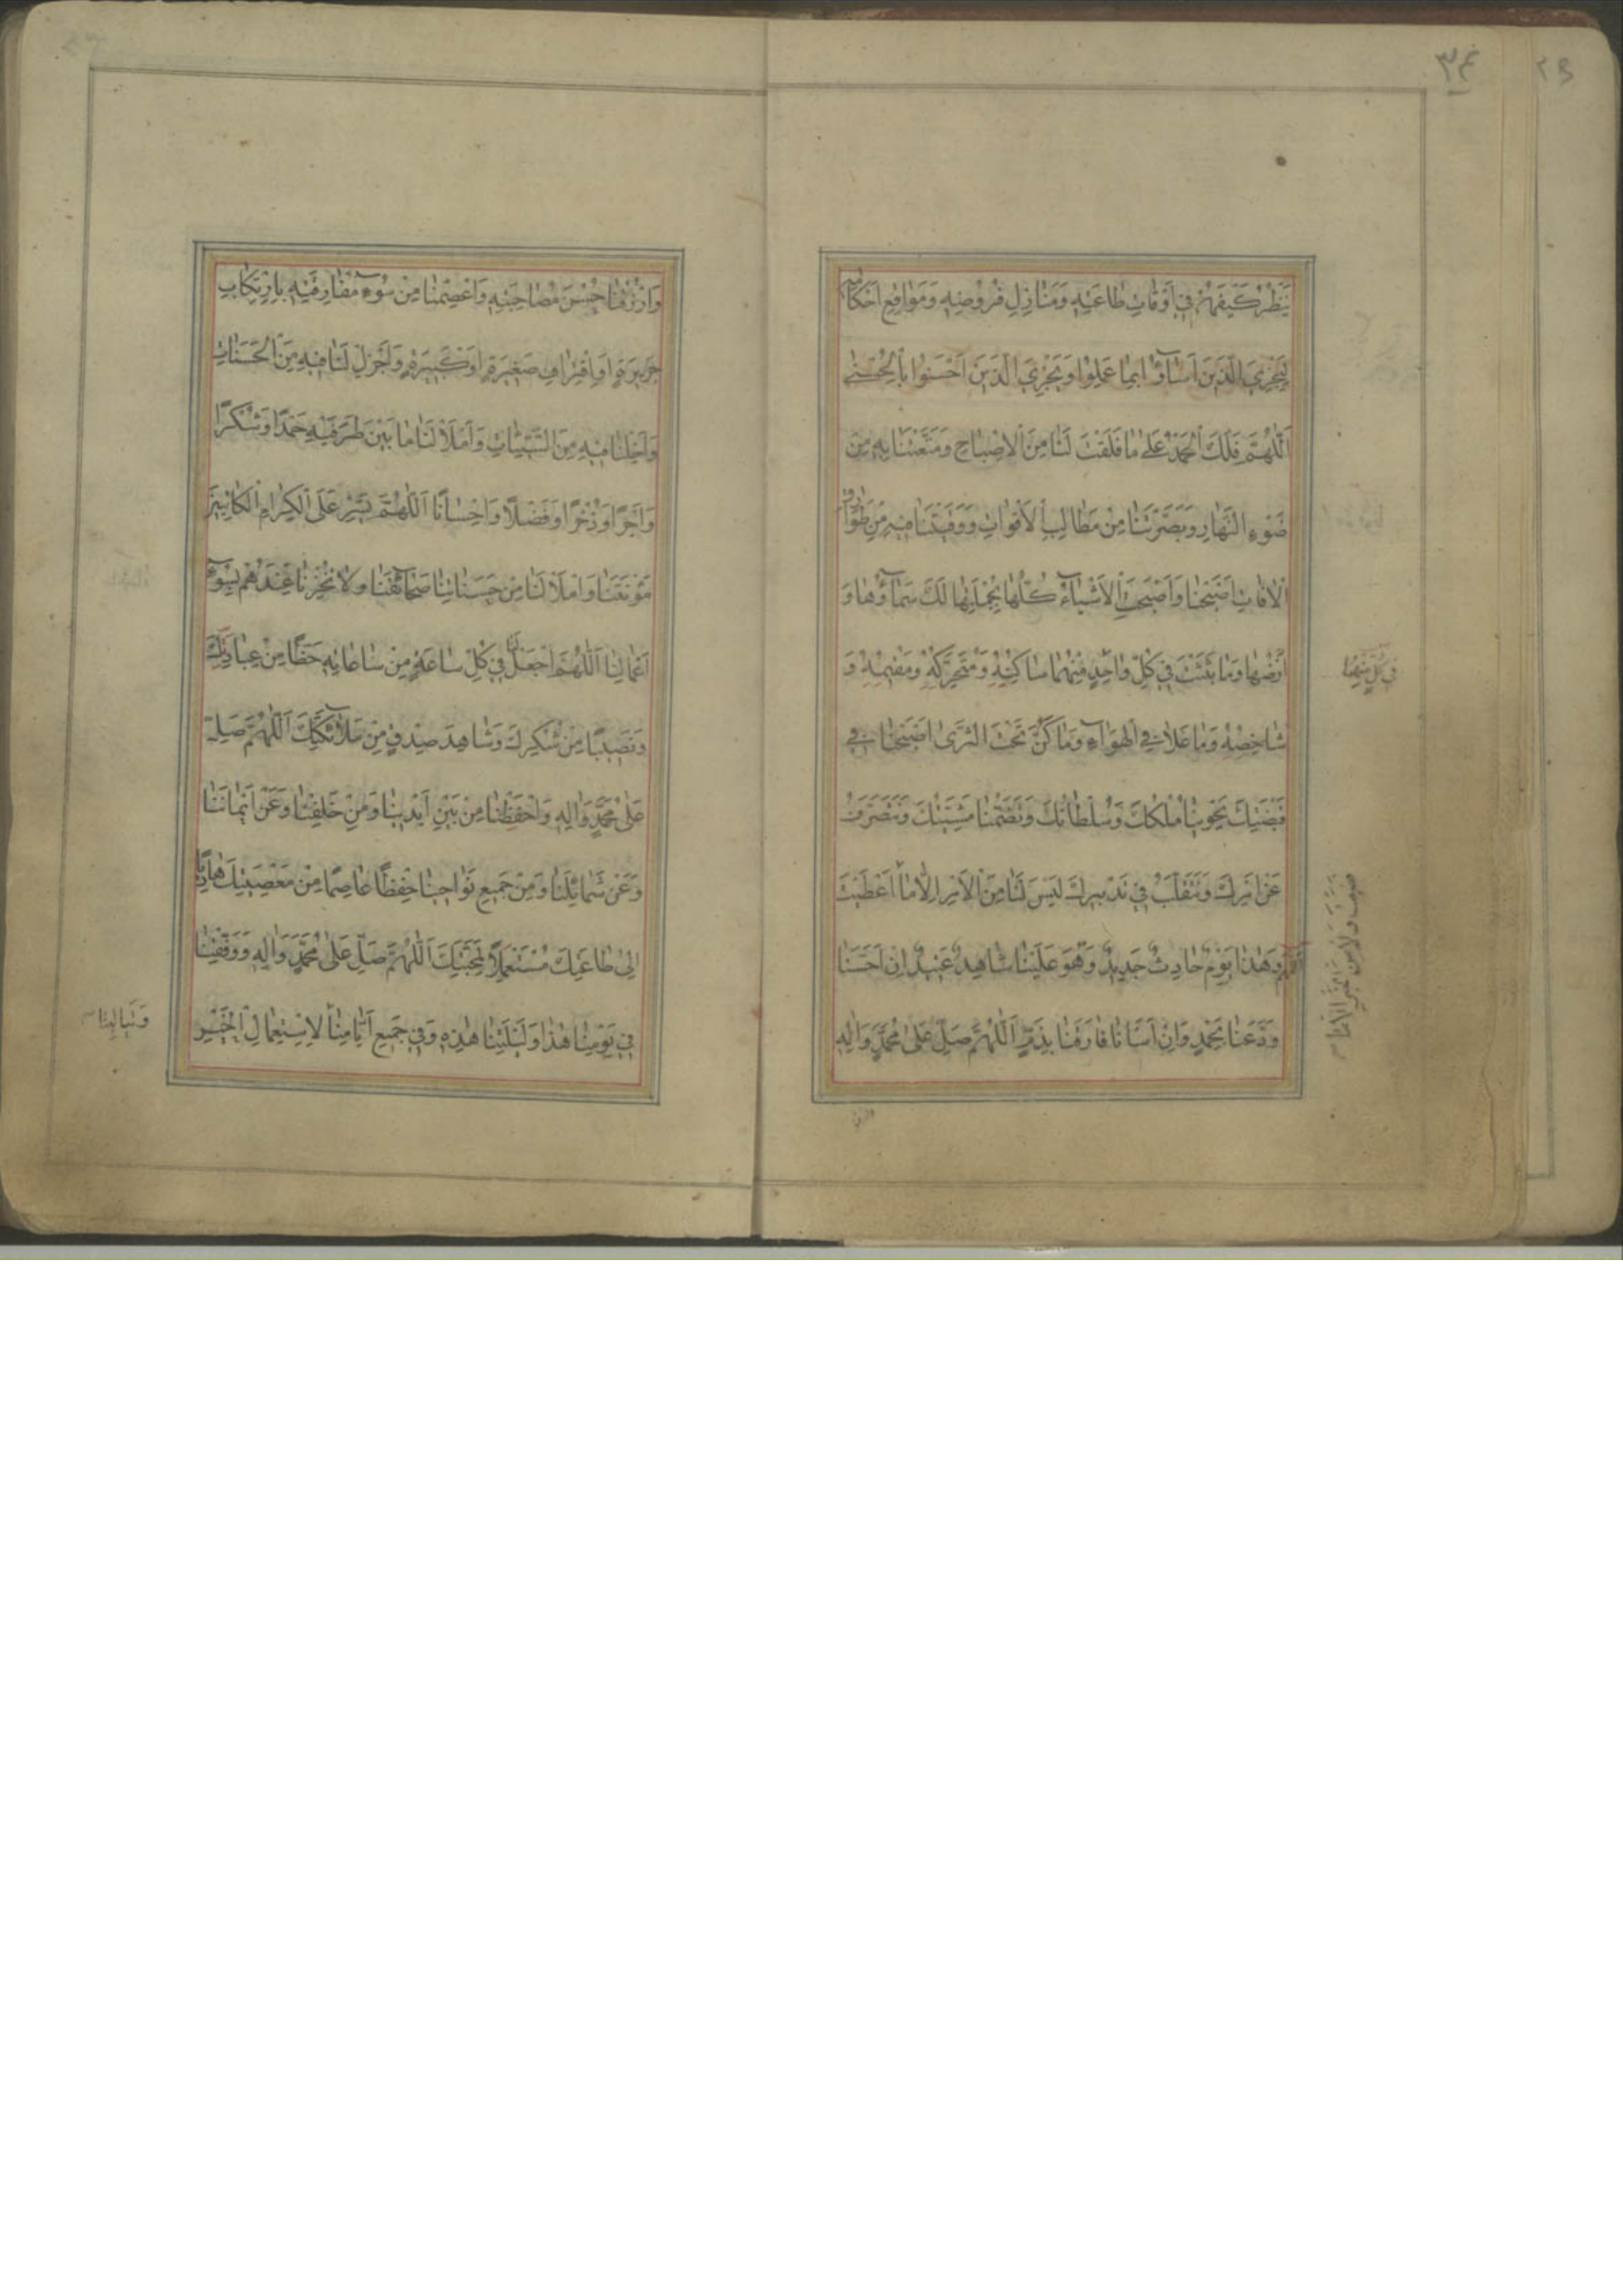 يَنْظُرُ كَيْفَ هُمْ فِي اَوْقَاتِ طَاعَتِهِ وَمَنَازِلِ فُرُوضِهِ وَمَوَاقِعِ اَحْكَامِهِ
لِيَجْزِيَ الَّذِينَ اَسَاؤُا بِمَا عَمِلُوا وَيَجْزِيَ الَّذِينَ اَحْسَنُوا بِالْحُسْنٰى
اَللّٰهُمَّ فَلَكَ الْحَمْدُ عَلٰى مَا فَلَقْتَ لَنَا مِنَ الْاِصْبَاحِ وَمَتَّعْتَنَا بِهِ مِنْ
ضَوْءِ النَّهَارِ وَبَصَّرْتَنَا مِنْ مَطَالِبِ الْاَقْوَاتِ وَوَقَيْتَنَا فِيهِ مِنْ طَوَارِقِ
الْاٰفَاتِ اَصْبَحْنَا وَاَصْبَحَتِ الْاَشْيَاءُ كُلُّهَا بِجُمْلَتِهَا لَكَ سَمَاؤُهَا وَ
اَرْضُهَا وَمَا بَثَثْتَ فِي كُلِّ وَاحِدٍ مِنْهُمَا سَاكِنُهُ وَمُتَحَرِّكُهُ وَمُقِيمُهُ وَ
شَاخِصُهُ وَمَا عَلَا فِي الْهَوَاءِ وَمَا كَنَّ تَحْتَ الثَّرٰى اَصْبَحْنَا فِي
قَبْضَتِكَ يَحْوِينَا مُلْكُكَ وَسُلْطَانُكَ وَتَضُمُّنَا مَشِيَّتُكَ وَنَتَصَرَّفُ
عَنْ اَمْرِكَ وَنَتَقَلَّبُ فِي تَدْبِيرِكَ لَيْسَ لَنَا مِنَ الْاَمْرِ اِلَّا مَا
وَهٰذَا يَوْمٌ حَادِثٌ جَدِيدٌ وَهُوَ عَلَيْنَا شَاهِدٌ عَتِيدٌ اِنْ اَحْسَنَّا
وَدَّعَنَا بِحَمْدٍ وَاِنْ اَسَأْنَا فَارَقَنَا بِذَمٍّ اَللّٰهُمَّ صَلِّ عَلٰى مُحَمَّدٍ وَاٰلِهِ
وَارْزُقْنَا حُسْنَ مُصَاحَبَتِهِ وَاعْصِمْنَا مِنْ سُوءِ مُفَارَقَتِهِ بِارْتِكَابِ
جَرِيرَةٍ اَوِ اقْتِرَافِ صَغِيرَةٍ اَوْ كَبِيرَةٍ وَاَجْزِلْ لَنَا فِيهِ مِنَ الْحَسَنَاتِ
وَاَخْلِنَا فِيهِ مِنَ السَّيِّئَاتِ وَامْلَأْ لَنَا مَا بَيْنَ طَرَفَيْهِ حَمْدًا وَشُكْرًا
وَاَجْرًا وَذُخْرًا وَفَضْلًا وَاِحْسَانًا اَللّٰهُمَّ يَسِّرْ عَلَى الْكِرَامِ الْكَاتِبِينَ
مَؤُنَتَنَا وَامْلَأْ لَنَا مِنْ حَسَنَاتِنَا صَحَائِفَنَا وَلَا تُخْزِنَا عِنْدَهُمْ بِسُوءِ
اَعْمَالِنَا اَللّٰهُمَّ اجْعَلْ لَنَا فِي كُلِّ سَاعَةٍ مِنْ سَاعَاتِهِ حَظًّا مِنْ عِبَادَتِكَ
وَنَصِيبًا مِنْ شُكْرِكَ وَشَاهِدَ صِدْقٍ مِنْ مَلَائِكَتِكَ اَللّٰهُمَّ صَلِّ
عَلٰى مُحَمَّدٍ وَاٰلِهِ وَاحْفَظْنَا مِنْ بَيْنِ اَيْدِينَا وَمِنْ خَلْفِنَا وَعَنْ اَيْمَانِنَا
وَعَنْ شَمَائِلِنَا وَمِنْ جَمِيعِ نَوَاحِينَا حِفْظًا عَاصِمًا مِنْ مَعْصِيَتِكَ هَادِيًا
اِلٰى طَاعَتِكَ مُسْتَعْمِلًا لِمَحَبَّتِكَ اَللّٰهُمَّ صَلِّ عَلٰى مُحَمَّدٍ وَاٰلِهِ وَوَفِّقْنَا
فِي يَوْمِنَا هٰذَا وَلَيْلَتِنَا هٰذِهِ وَفِي جَمِيعِ اَيَّامِنَا لِاسْتِعْمَالِ الْخَيْرِ